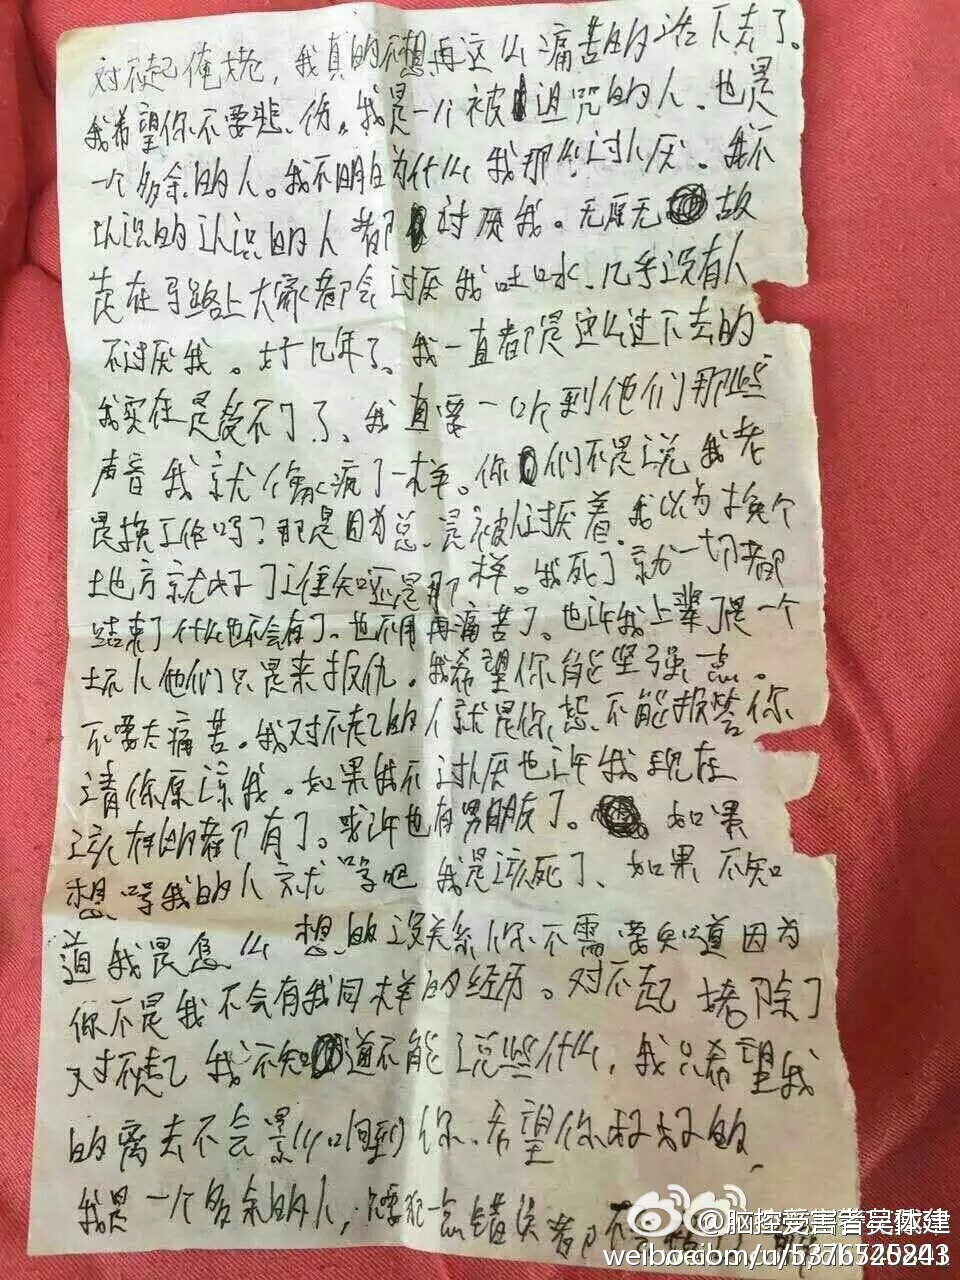 对不起俺姥，我真的不想再这么痛苦的活下去了。
我希望你不要悲伤。我是一个被诅咒的人、也是
一个多余的人。我不明白为什么我那么讨人厌。我不
认识的认识的人都讨厌我。无原无故
走在马路上大家都会讨厌我吐口水、几乎没有人
不讨厌我。好几年了、我一直都是这么过下去的
我实在是受不了了、我直要一听到他们那些
声音我就像疯了一样。你们不是说我老
是换工作吗？那是因为总是被人讨厌着、我以为换个
地方就好了谁知呀还是那样。我死了就一切都
结束了什么也不会有了。也不用再痛苦了。也许我上辈子是一个
坏人他们只是来报仇。我希望你能坚强点。
不要太痛苦。我对不起的人就是你、不能报答你
请你原谅我。如果我不讨厌也许我现在
该有的都有了。或许也有男朋友了。如果
想等我的人就等吧我是该死了、如果不知
道我是怎么想的没关系你不需要知道因为
你不是我不会有我同样的经历。对不起姥除了
对不起我不知道不能说些什么，我只希望我
的离去不会影响到你、希望你好好的、
我是一个多余的人，
@脑控受害者吴
weibo.com/u/5376